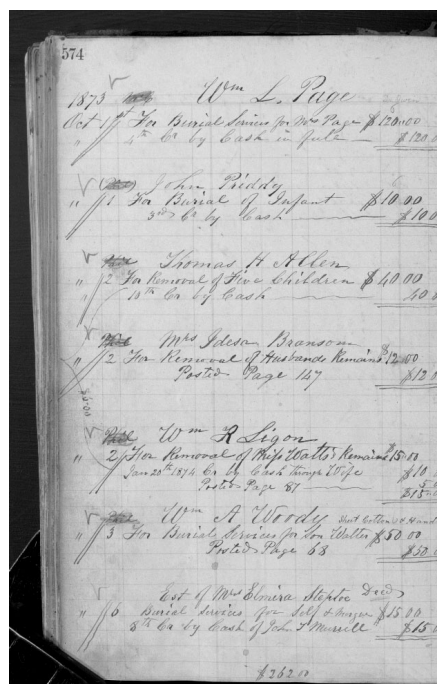 574
1873 Wm L. Page
Oct 1st For Burial Services for Mrs Page $120.00
" 4th Cr by Cash in full $120.0
John Priddy
" 1 For Burial of Infant $10.00
3rd Cr by Cash $10.0
Thomas H Allen
" 2 For Removal of Five Children $40.00
" 10th Cr by Cash 40.0
Mrs Idesa Bransom
" 2 For Removal of Husbands Remains $12.00
Posted Page 147 $12.0
$5.00
Wm R Ligon
" 2 For Removal of Miss Watts Remains $15.00
Jan 20th 1874 Cr by Cash through Wife $10
Posted Page 87 5
$15.0
Wm A Woody Short Cotton & Hand
" 3 For Burial Services for Son Walter $50.00
Posted Page 68 $50.
Est of Mrs Elmira Steptoe Decd
" 6 Burial Services for Self & $15.00
8th Cr by Cash of John F Murrell $15.
$262.00